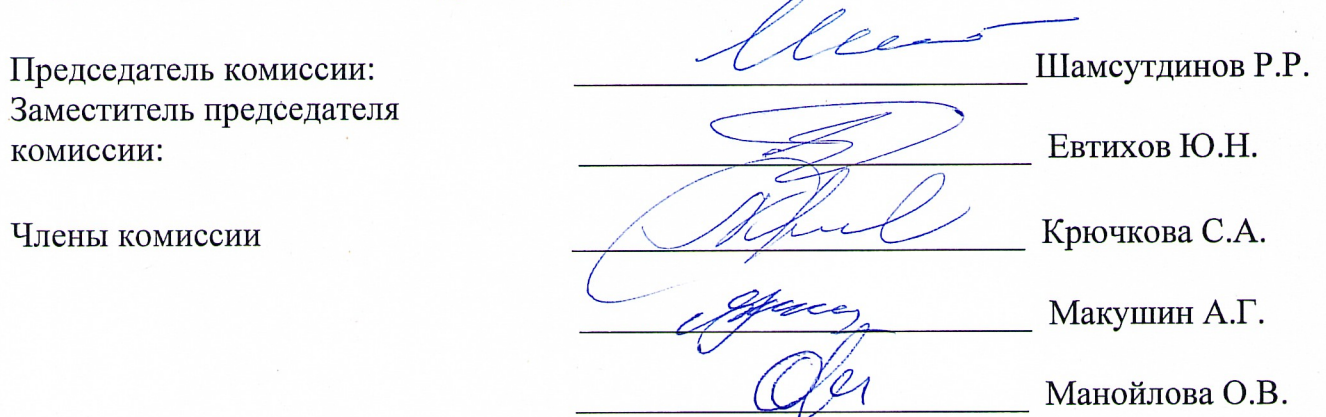 Председатель комиссии: Шамсутдинов Р.Р.
Заместитель председателя
комиссии: Евтихов Ю.Н.
Члены комиссии Крючкова С.А.
Макушин А.Г.
Манойлова О.В.